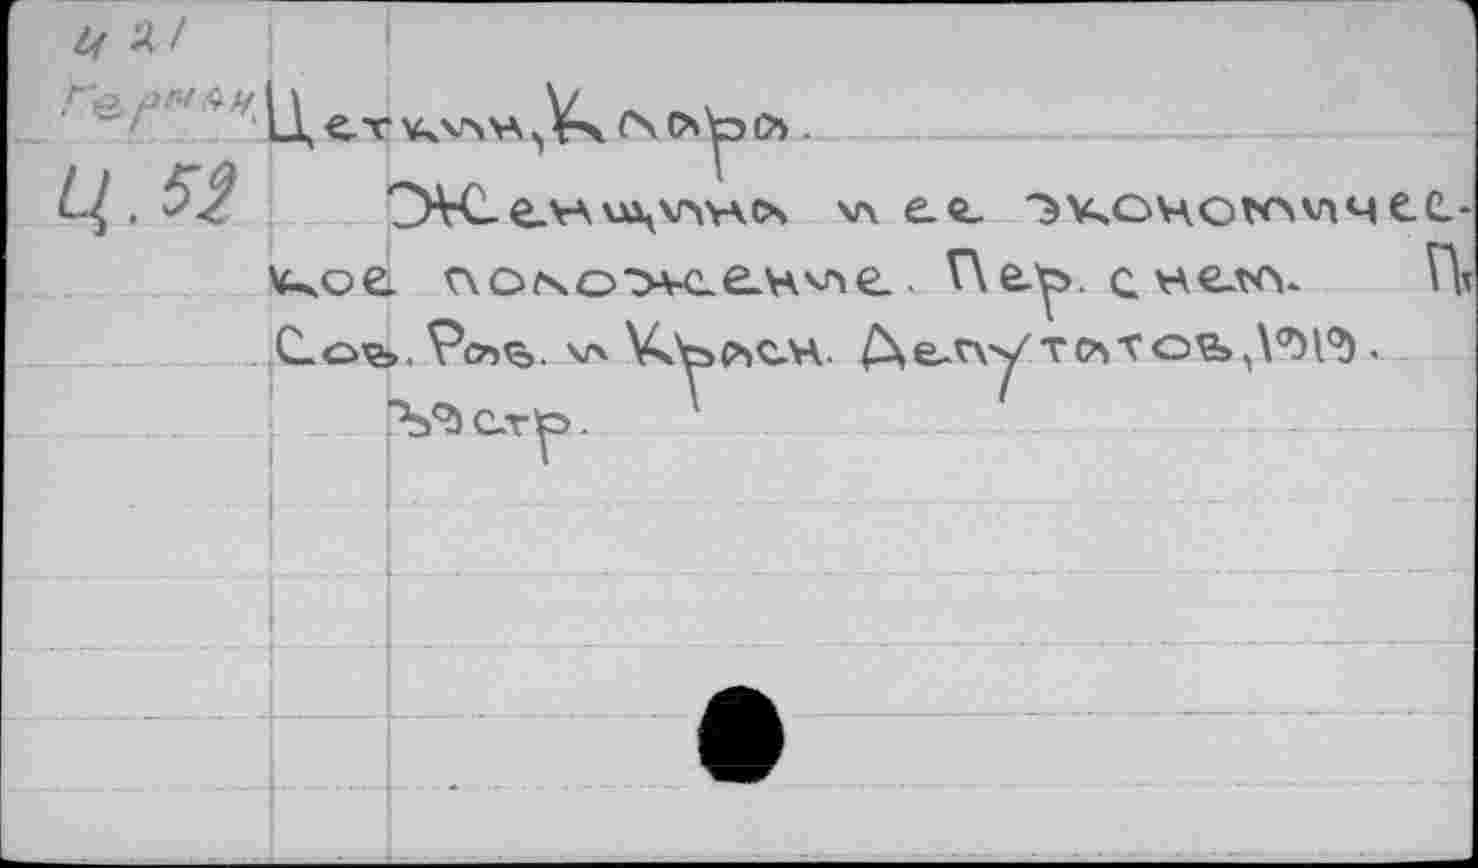 Ц 21
Герман.
Цеткин, Клара.
Ц. 52
Женщина и ее экономичес-
кое положение. Пер. с нем. П
Сов. Раб. и Красн. Депутатов, 1919.
39 стр.